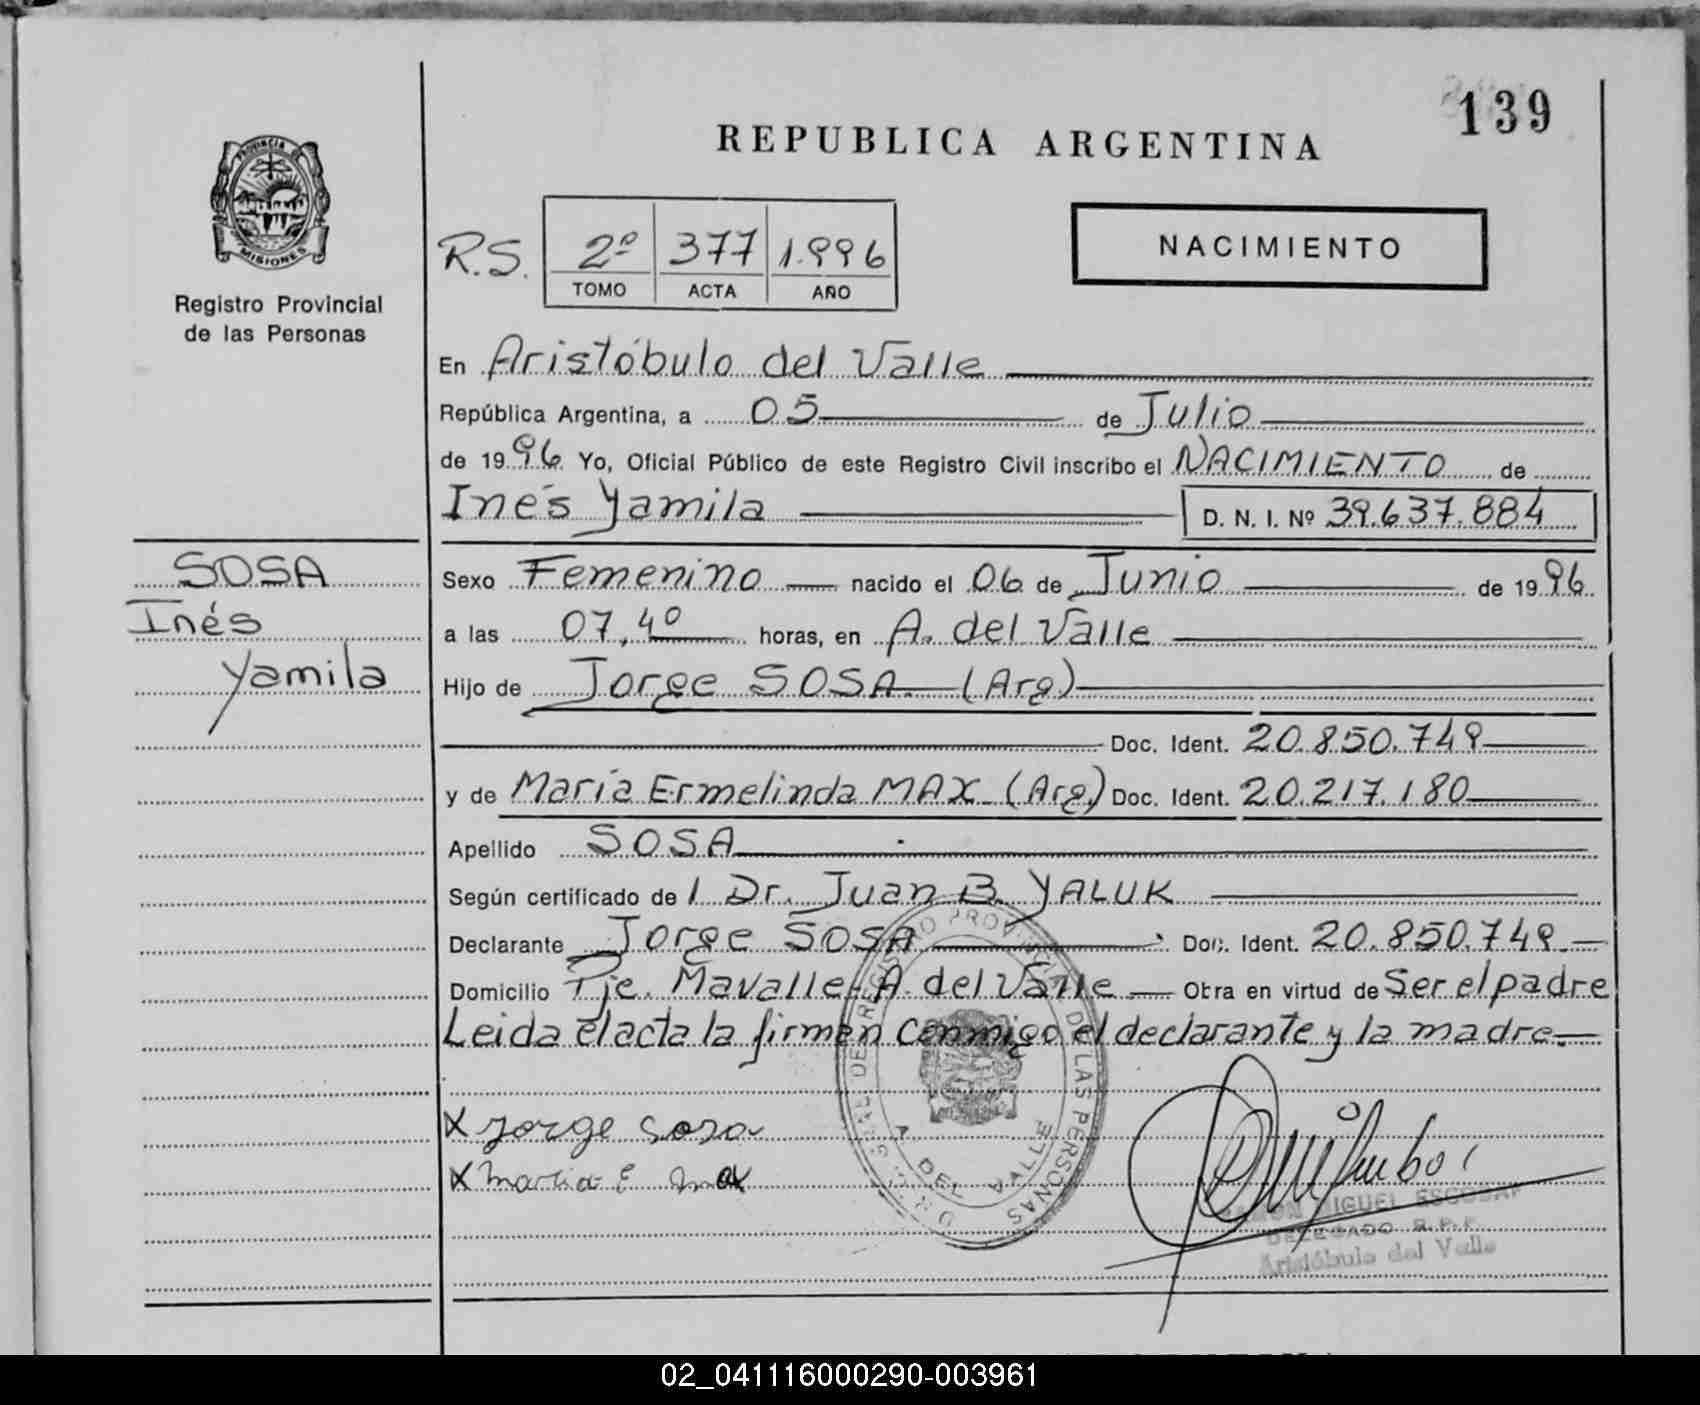 139
REPUBLICA ARGENTINA
PROVINCIA DE
MISIONES
Registro Provincial
de las Personas
R.S.
2º 377 1.996
TOMO ACTA AÑO
NACIMIENTO
En Aristóbulo del Valle
República Argentina, a 05 de Julio
de 1996 Yo, Oficial Público de este Registro Civil inscribo el NACIMIENTO de
Inés Yamila D. N. I. Nº 39.637.884
SOSA
Inés
Yamila
Sexo Femenino nacido el 06 de Junio de 1996
a las 07,40 horas, en A. del Valle
Hijo de Jorge SOSA. (Arg)
Doc. Ident. 20.850.749
y de María Ermelinda MAX (Arg.) Doc. Ident. 20.217.180
Apellido SOSA
Según certificado de l Dr. Juan B. YALUK
Declarante Jorge SOSA Doc. Ident. 20.850.749.
Domicilio Pje. Mavalle-A. del Valle Obra en virtud de Ser el padre
Leida el acta la firman conmigo el declarante y la madre.
X Jorge Sosa
X Maria E max
A. DEL VALLE
RAMON MIGUEL ESCOBAR
DELEGADO R.P.P.
Aristóbulo del Valle
02_041116000290-003961